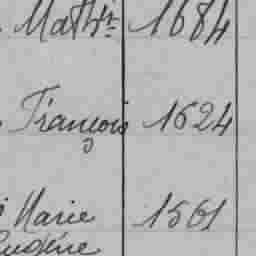 Mathin 1684
François 1624
Marie 1561
Eugénie